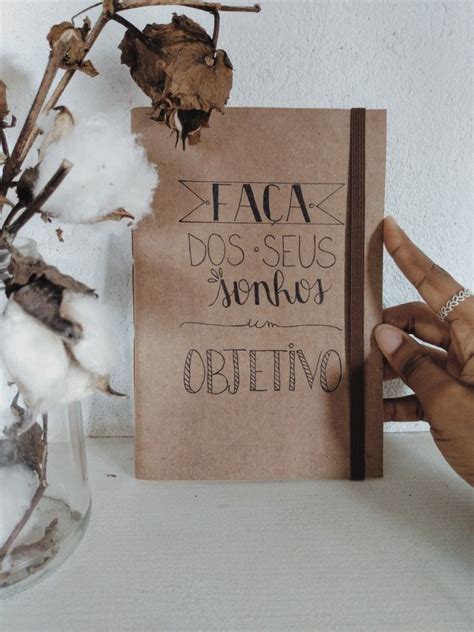 FAÇA
DOS • SEUS
sonhos
um
OBJETIVO